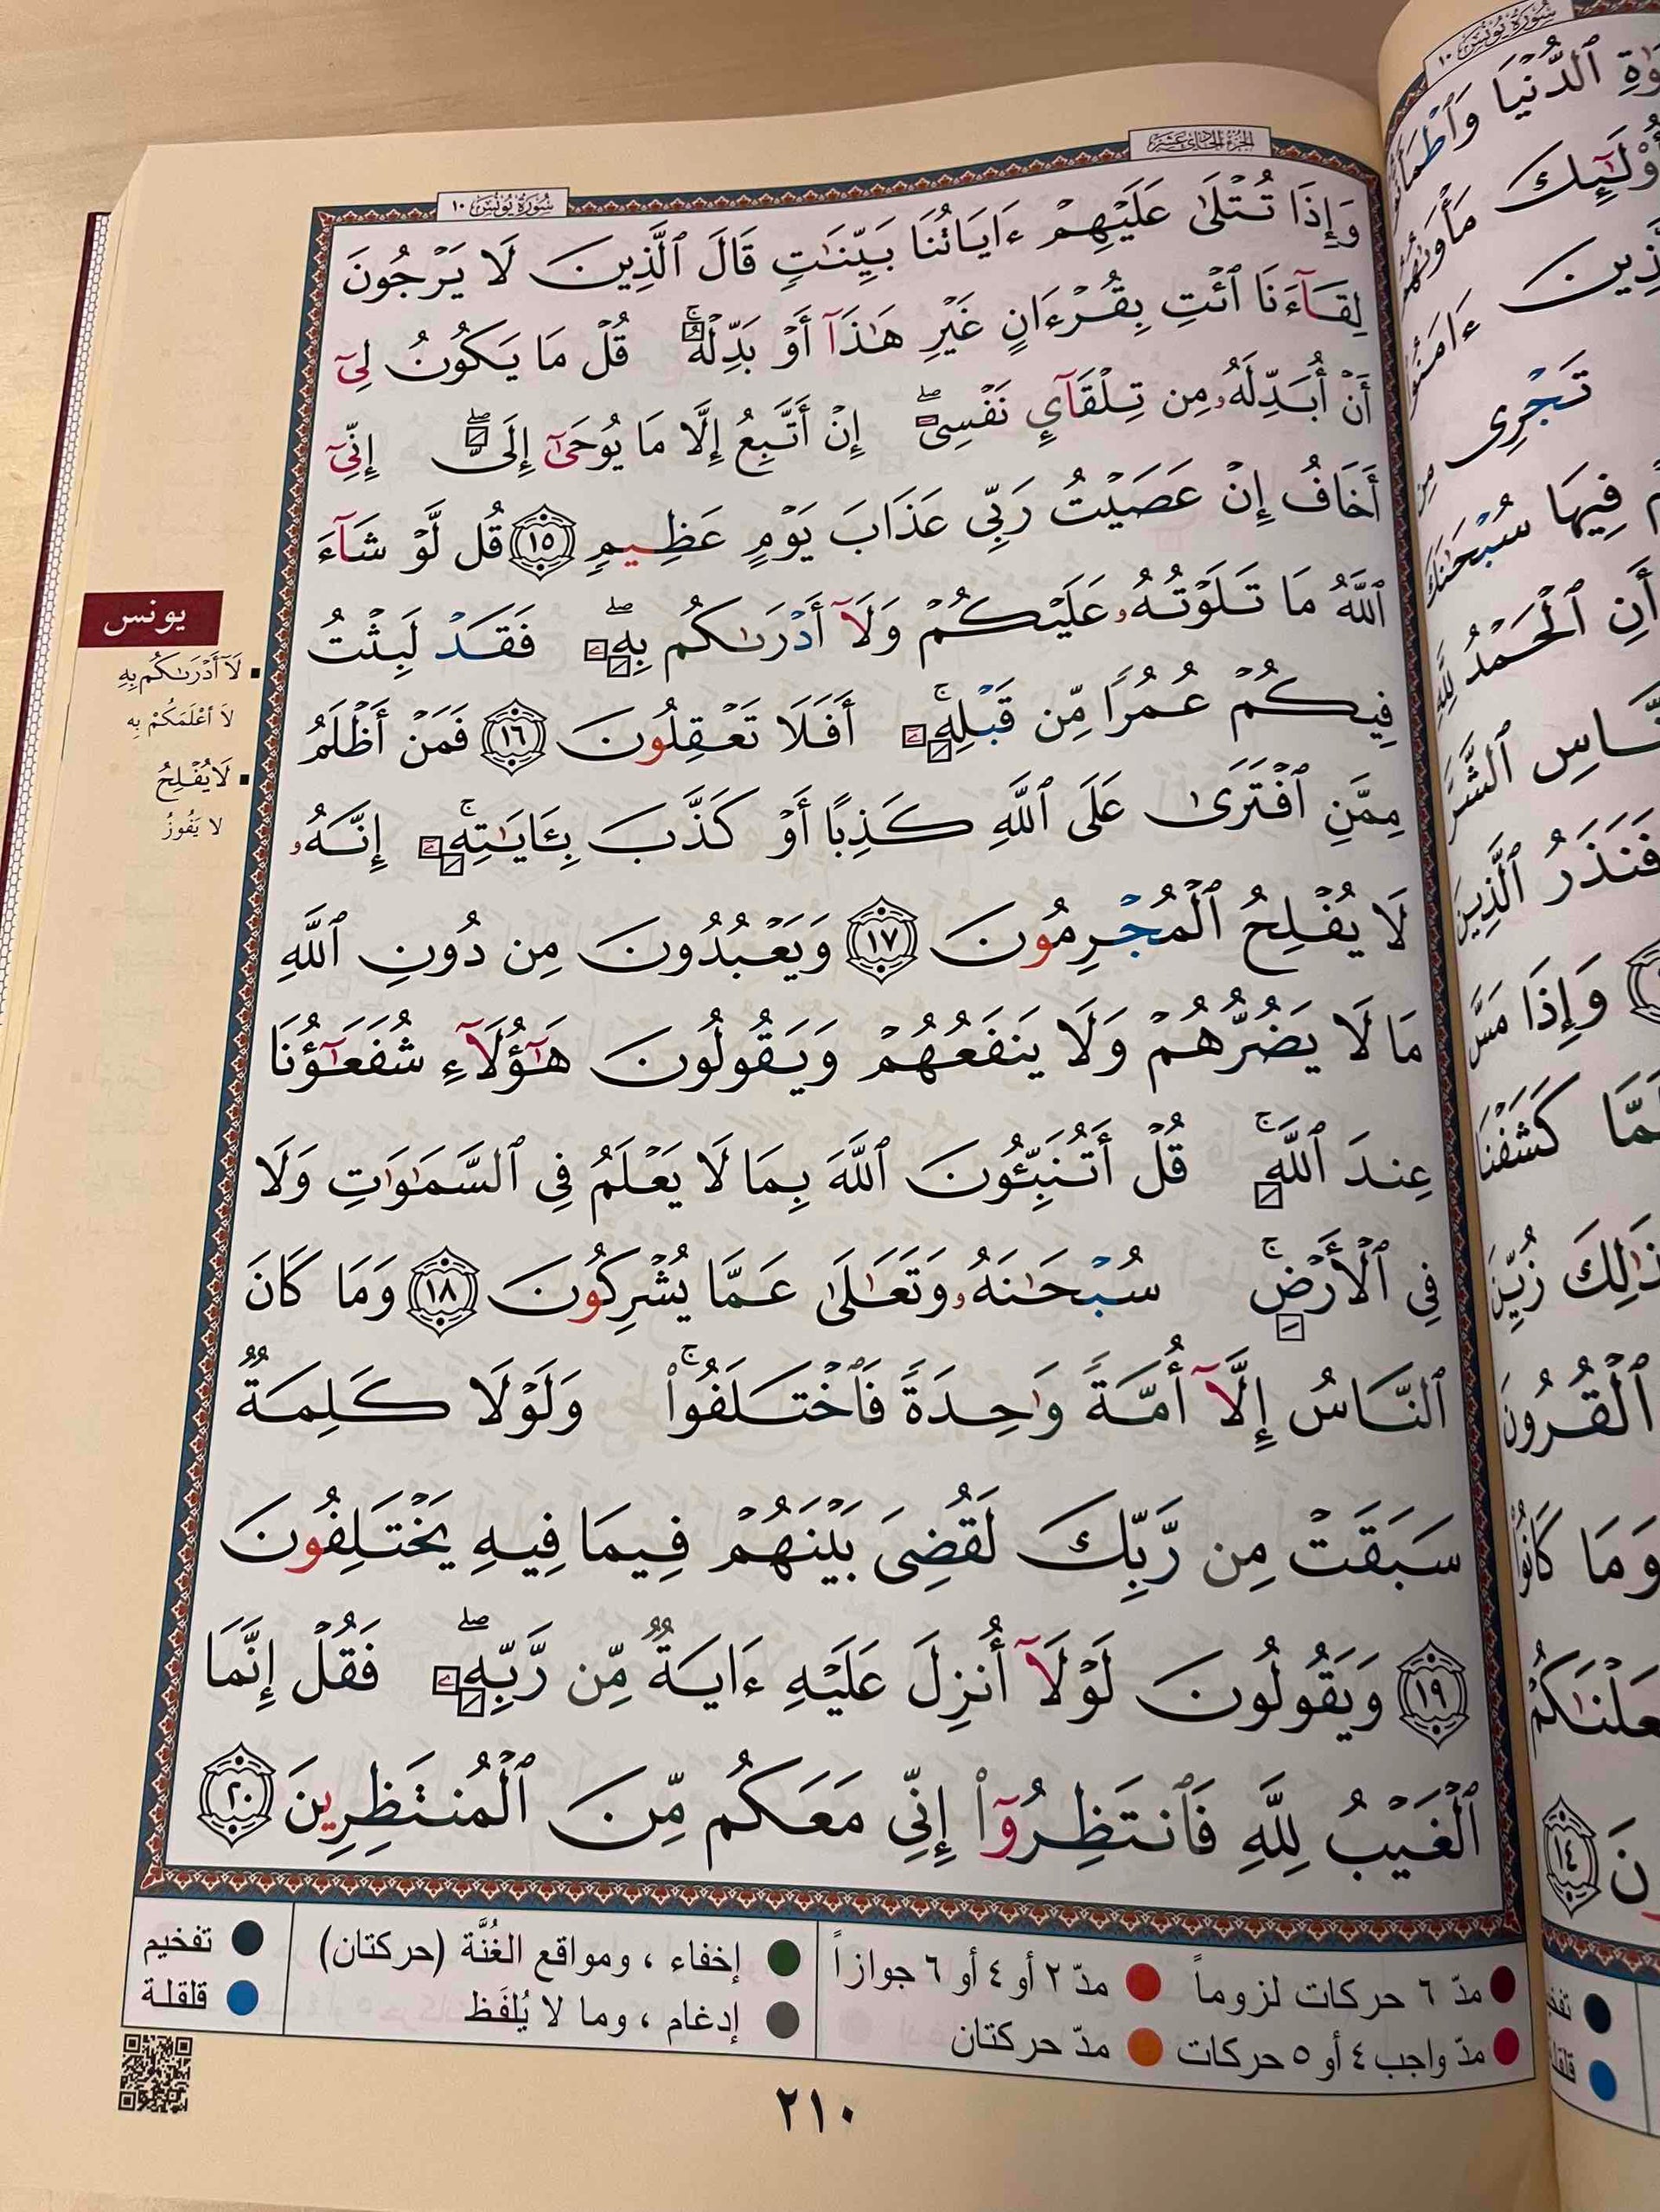 الجزء الحادي عشر
سورة يونس ١٠
وَإِذَا تُتْلَىٰ عَلَيْهِمْ ءَايَاتُنَا بَيِّنَٰتٍ قَالَ ٱلَّذِينَ لَا يَرْجُونَ
لِقَآءَنَا ٱئْتِ بِقُرْءَانٍ غَيْرِ هَٰذَآ أَوْ بَدِّلْهُ ۚ قُلْ مَا يَكُونُ لِىٓ
أَنْ أُبَدِّلَهُۥ مِن تِلْقَآئِ نَفْسِىٓ ۖ إِنْ أَتَّبِعُ إِلَّا مَا يُوحَىٰٓ إِلَىَّ ۖ إِنِّىٓ
أَخَافُ إِنْ عَصَيْتُ رَبِّى عَذَابَ يَوْمٍ عَظِيمٍ ١٥ قُل لَّوْ شَآءَ
ٱللَّهُ مَا تَلَوْتُهُۥ عَلَيْكُمْ وَلَآ أَدْرَىٰكُم بِهِۦ ۖ فَقَدْ لَبِثْتُ
فِيكُمْ عُمُرًا مِّن قَبْلِهِۦٓ ۚ أَفَلَا تَعْقِلُونَ ١٦ فَمَنْ أَظْلَمُ
مِمَّنِ ٱفْتَرَىٰ عَلَى ٱللَّهِ كَذِبًا أَوْ كَذَّبَ بِـَٔايَٰتِهِۦٓ ۚ إِنَّهُۥ
لَا يُفْلِحُ ٱلْمُجْرِمُونَ ١٧ وَيَعْبُدُونَ مِن دُونِ ٱللَّهِ
مَا لَا يَضُرُّهُمْ وَلَا يَنفَعُهُمْ وَيَقُولُونَ هَٰٓؤُلَآءِ شُفَعَٰٓؤُنَا
عِندَ ٱللَّهِ ۚ قُلْ أَتُنَبِّـُٔونَ ٱللَّهَ بِمَا لَا يَعْلَمُ فِى ٱلسَّمَٰوَٰتِ وَلَا
فِى ٱلْأَرْضِ ۚ سُبْحَٰنَهُۥ وَتَعَٰلَىٰ عَمَّا يُشْرِكُونَ ١٨ وَمَا كَانَ
ٱلنَّاسُ إِلَّآ أُمَّةً وَٰحِدَةً فَٱخْتَلَفُوا۟ ۚ وَلَوْلَا كَلِمَةٌ
سَبَقَتْ مِن رَّبِّكَ لَقُضِىَ بَيْنَهُمْ فِيمَا فِيهِ يَخْتَلِفُونَ
١٩ وَيَقُولُونَ لَوْلَآ أُنزِلَ عَلَيْهِ ءَايَةٌ مِّن رَّبِّهِۦ ۖ فَقُلْ إِنَّمَا
ٱلْغَيْبُ لِلَّهِ فَٱنتَظِرُوٓا۟ إِنِّى مَعَكُم مِّنَ ٱلْمُنتَظِرِينَ ٢٠
يونس
لَآ أَدْرَىٰكُم بِهِ
لَا أَعْلَمَكُمْ بِه
لَا يُفْلِحُ
لا يَفُوزُ
مدّ ٦ حركات لزوماً
مدّ ٢ أو ٤ أو ٦ جوازاً
مدّ واجب ٤ أو ٥ حركات
مدّ حركتان
إخفاء ، ومواقع الغُنَّة (حركتان)
إدغام ، وما لا يُلفَظ
تفخيم
قلقلة
٢١٠
سورة يونس ١٠
ٱلدُّنْيَا
أُو۟لَٰٓئِكَ
ءَامَنُوا۟
تَجْرِى
فِيهَا سُبْحَٰنَكَ
أَنِ ٱلْحَمْدُ لِلَّهِ
فَنَذَرُ ٱلَّذِينَ
وَإِذَا مَسَّ
كَشَفْنَا
زُيِّنَ
ٱلْقُرُونَ
وَمَا كَانُوا۟
١٤